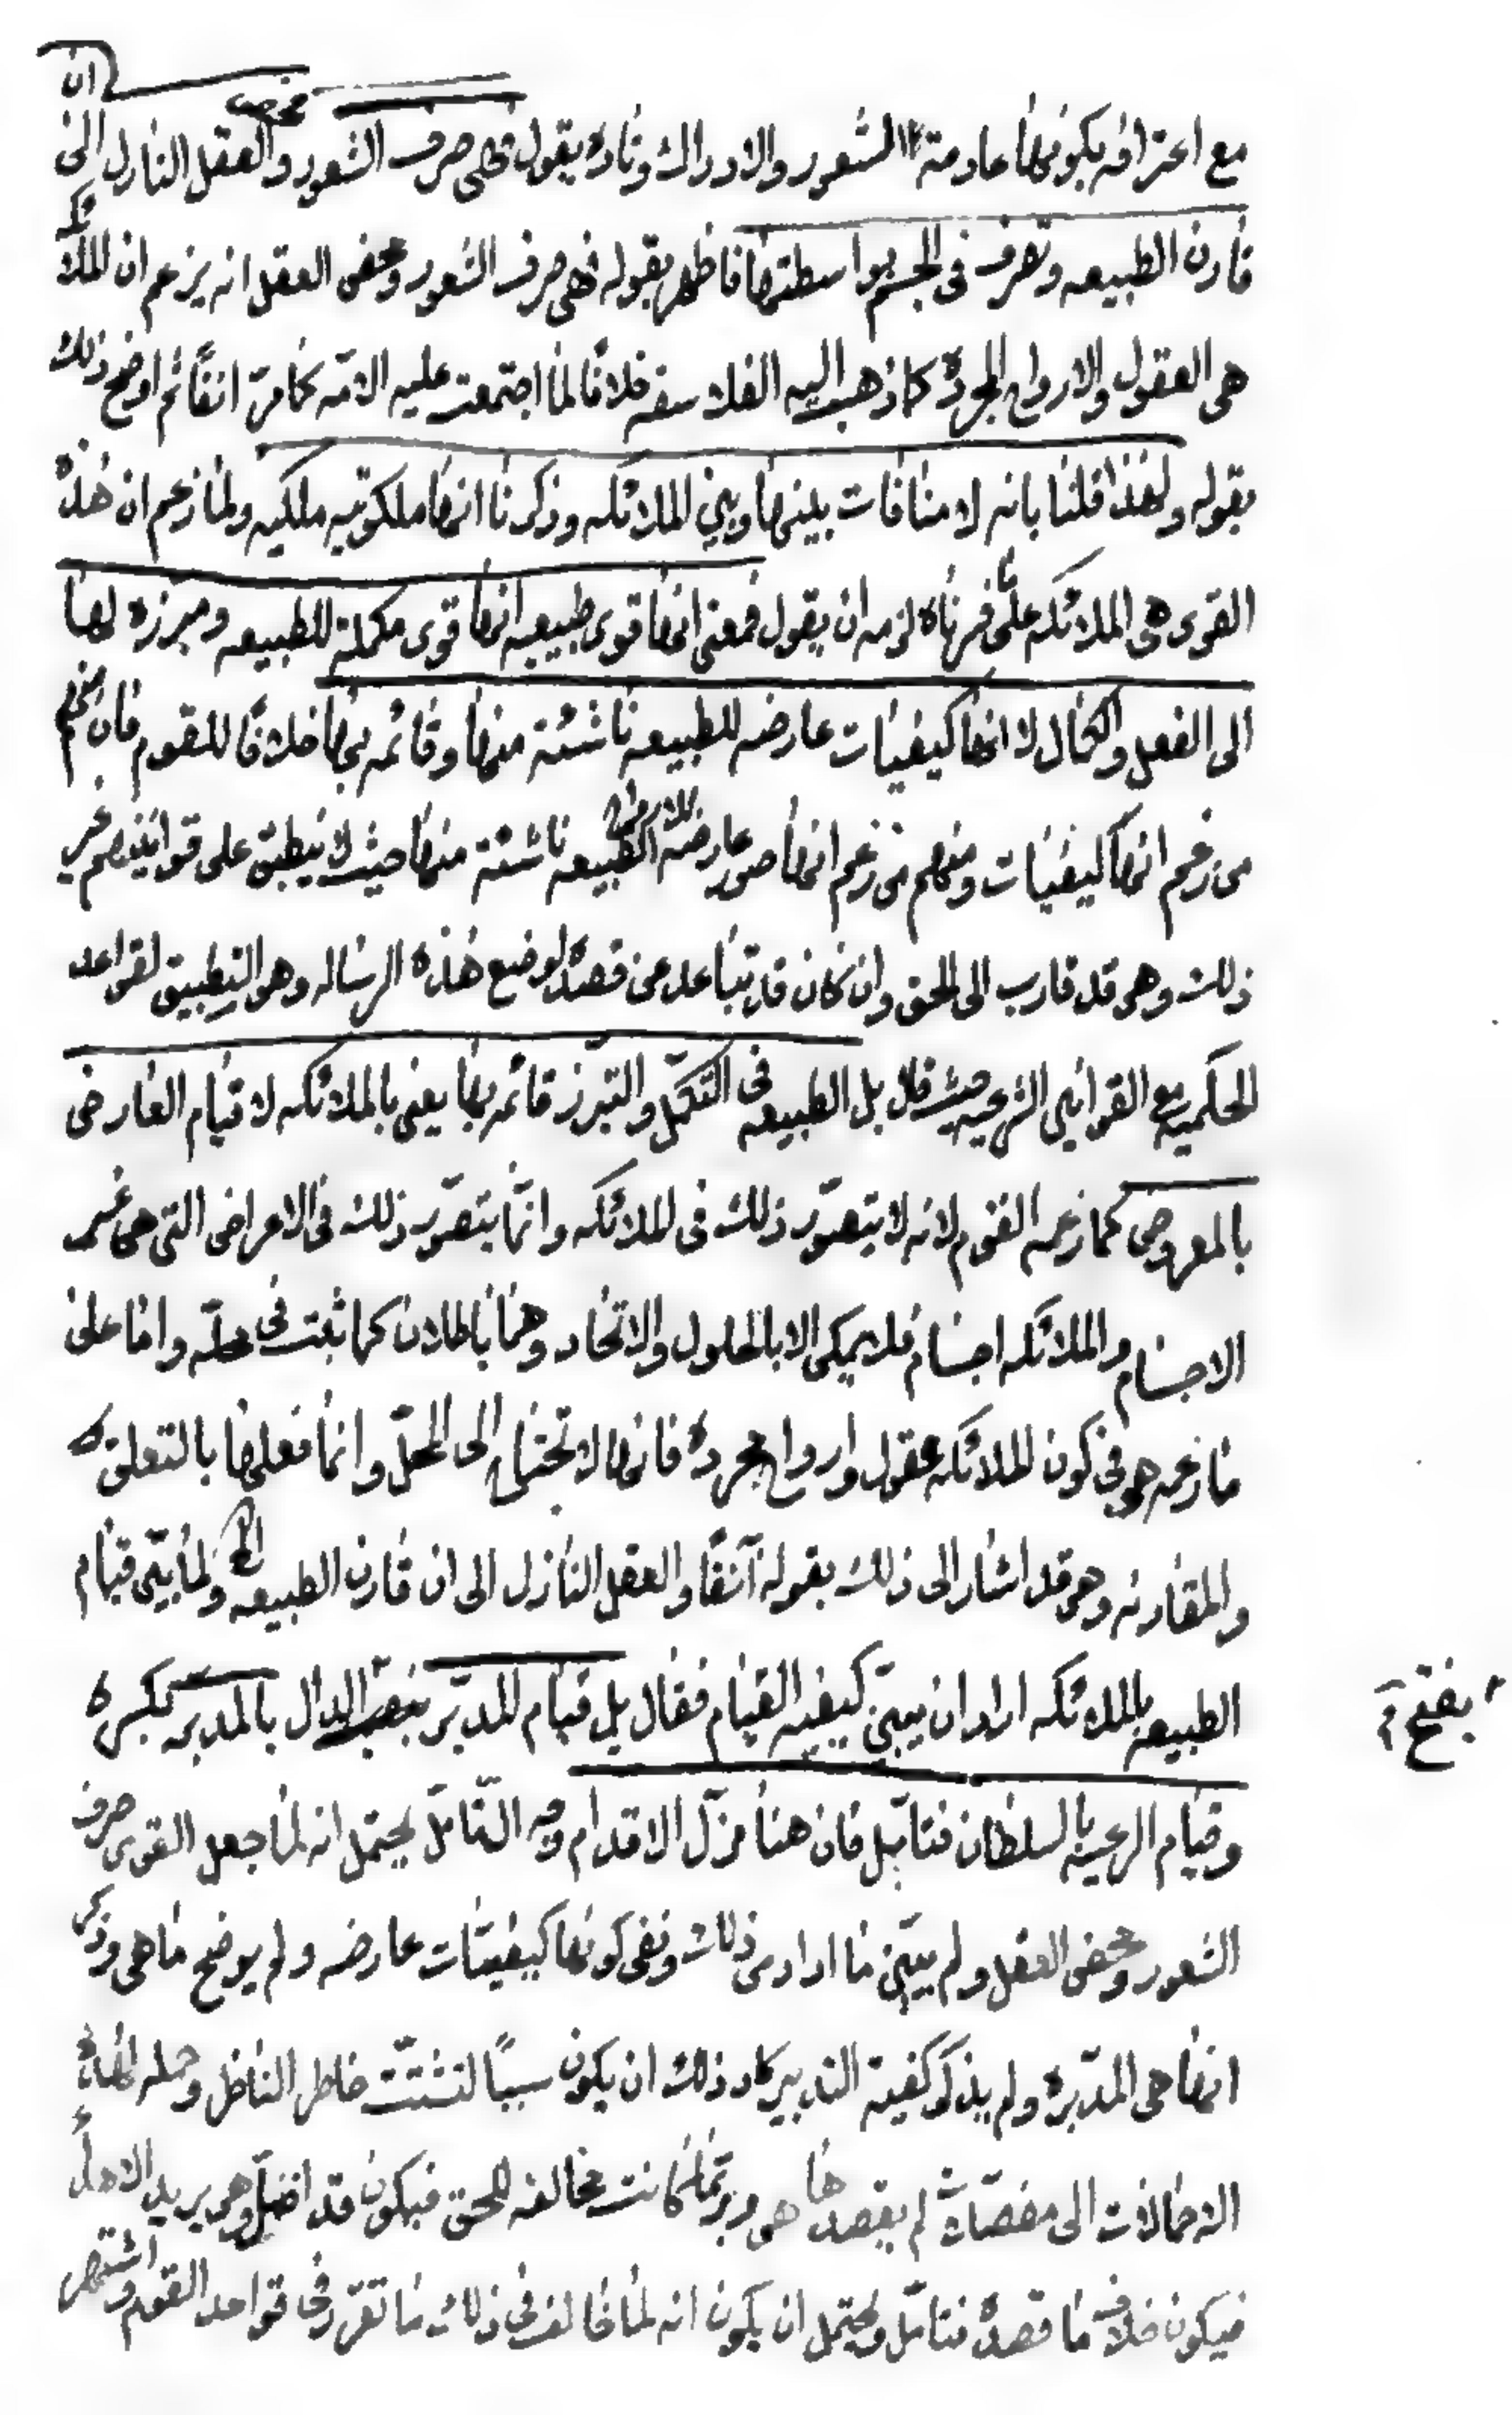 مع اعترافه بكونها عادمة الشعور والادراك وتارة يقول فهى صرف الشعور ومحض العقل النازل الى ان
قارن الطبيعه وتصرف فى الجسم بواسطتها فاظهر بقوله فهى صرف الشعور ومحض العقل انه يزعم ان الملائكه
هى العقول والارواح المجردة كما ذهب اليه الفلاسفه خلافًا لما اجتمعت عليه الامّه كما مرّ انفًا ثم اوضح ذلك
بقوله ولهذا قلنا بانه لا منافات بينها وبين الملائكه وذكرنا انها ملكوتيه ملكيه ولما زعم ان هذه
القوى هى الملائكه على ما قررناه لزمه ان يقول فمعنى انها قوى طبيعيه انها قوى مكملة للطبيعه ومبرزه لها
الى الفعل والكمال لا انها كيفيات عارضه للطبيعه ناشئة منها وقائمه بها خلافًا للقوم فان منهم
من زعم انها كيفيات ومنهم من زعم انها صور عارضه للطبيعه ناشئة منها حيث لا ينطبق على قوانينهم غير
ذلك وهو قد قارب الى الحق وان كان قد تباعد عن قصده لوضع هذه الرساله وهو التطبيق لقواعد
الحكميه مع القوانين الشرعيه حيث قال بل الطبيعه فى التكمّل والتبرّز قائمه بها يعنى بالملائكه لا قيام العارض
بالمعروض كما زعمه القوم لانه لا يتصوّر ذلك فى الملائكه وانّما يتصوّر ذلك فى الاعراض التى هى غير
الاجسام والملائكه اجسام فلا يمكن الا بالحلول والاتحاد وهما باطلان كما ثبت فى محلّه واما على
ما زعمه هو فى كون الملائكه عقول وارواح مجردة فانها لا تحتاج الى المحلّ وانما فعلها بالتعلق
والمقارنه وهو قد اشار الى ذلك بقوله آنفًا والعقل النازل الى ان قارن الطبيعه الخ ولما بيّن قيام
الطبيعه بالملائكه اراد ان يبيّن كيفيه القيام فقال بل قيام المدبّر بنصب الدال بالمدبر بكسره
بفتح
وقيام الرعيه بالسلطان فتامّل فان هنا مزلّ الاقدام وجه التامّل يحتمل انه لما جعل القوى صرف
الشعور ومحض العقل ولم يبيّن ما اراد من ذلك ونفى كونها كيفيّات عارضه ولم يوضح ما هى وذكر
انها هى المدبّره ولم يذكر كيفية التدبير كاد ذلك ان يكون سببًا لتشتّت خاطر الناظر وحمله لهذه
الاحتمالات الى لم يقصدها هو وربّما كانت مخالفه للحق فيكون قد اضلّ وهو يريد الاهداء
فيكون خلاف ما قصده فتامّل ويحتمل ان يكون انه لما خالف فى ذلك ما تقرّر فى قواعد القوم واشتهر